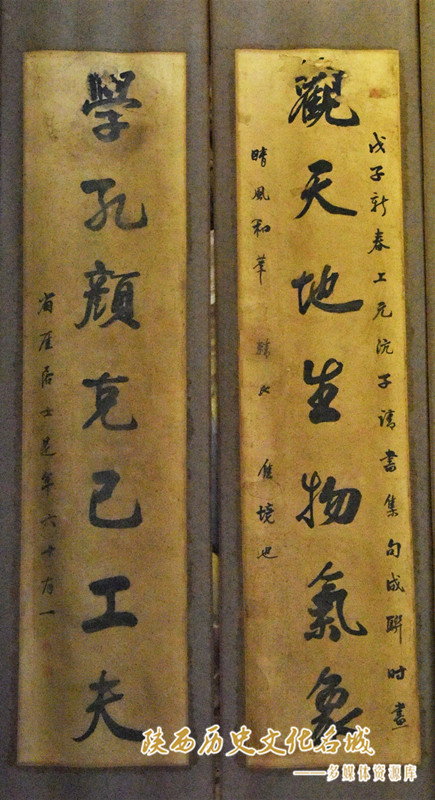 戊子新春上元沅子請書集句成聯时畫
觀天地生物氣象
晴風和華
佳境也
學孔顏克己工夫
省厓居士是年六十有一
陕西历史文化名城
——多媒体资源库